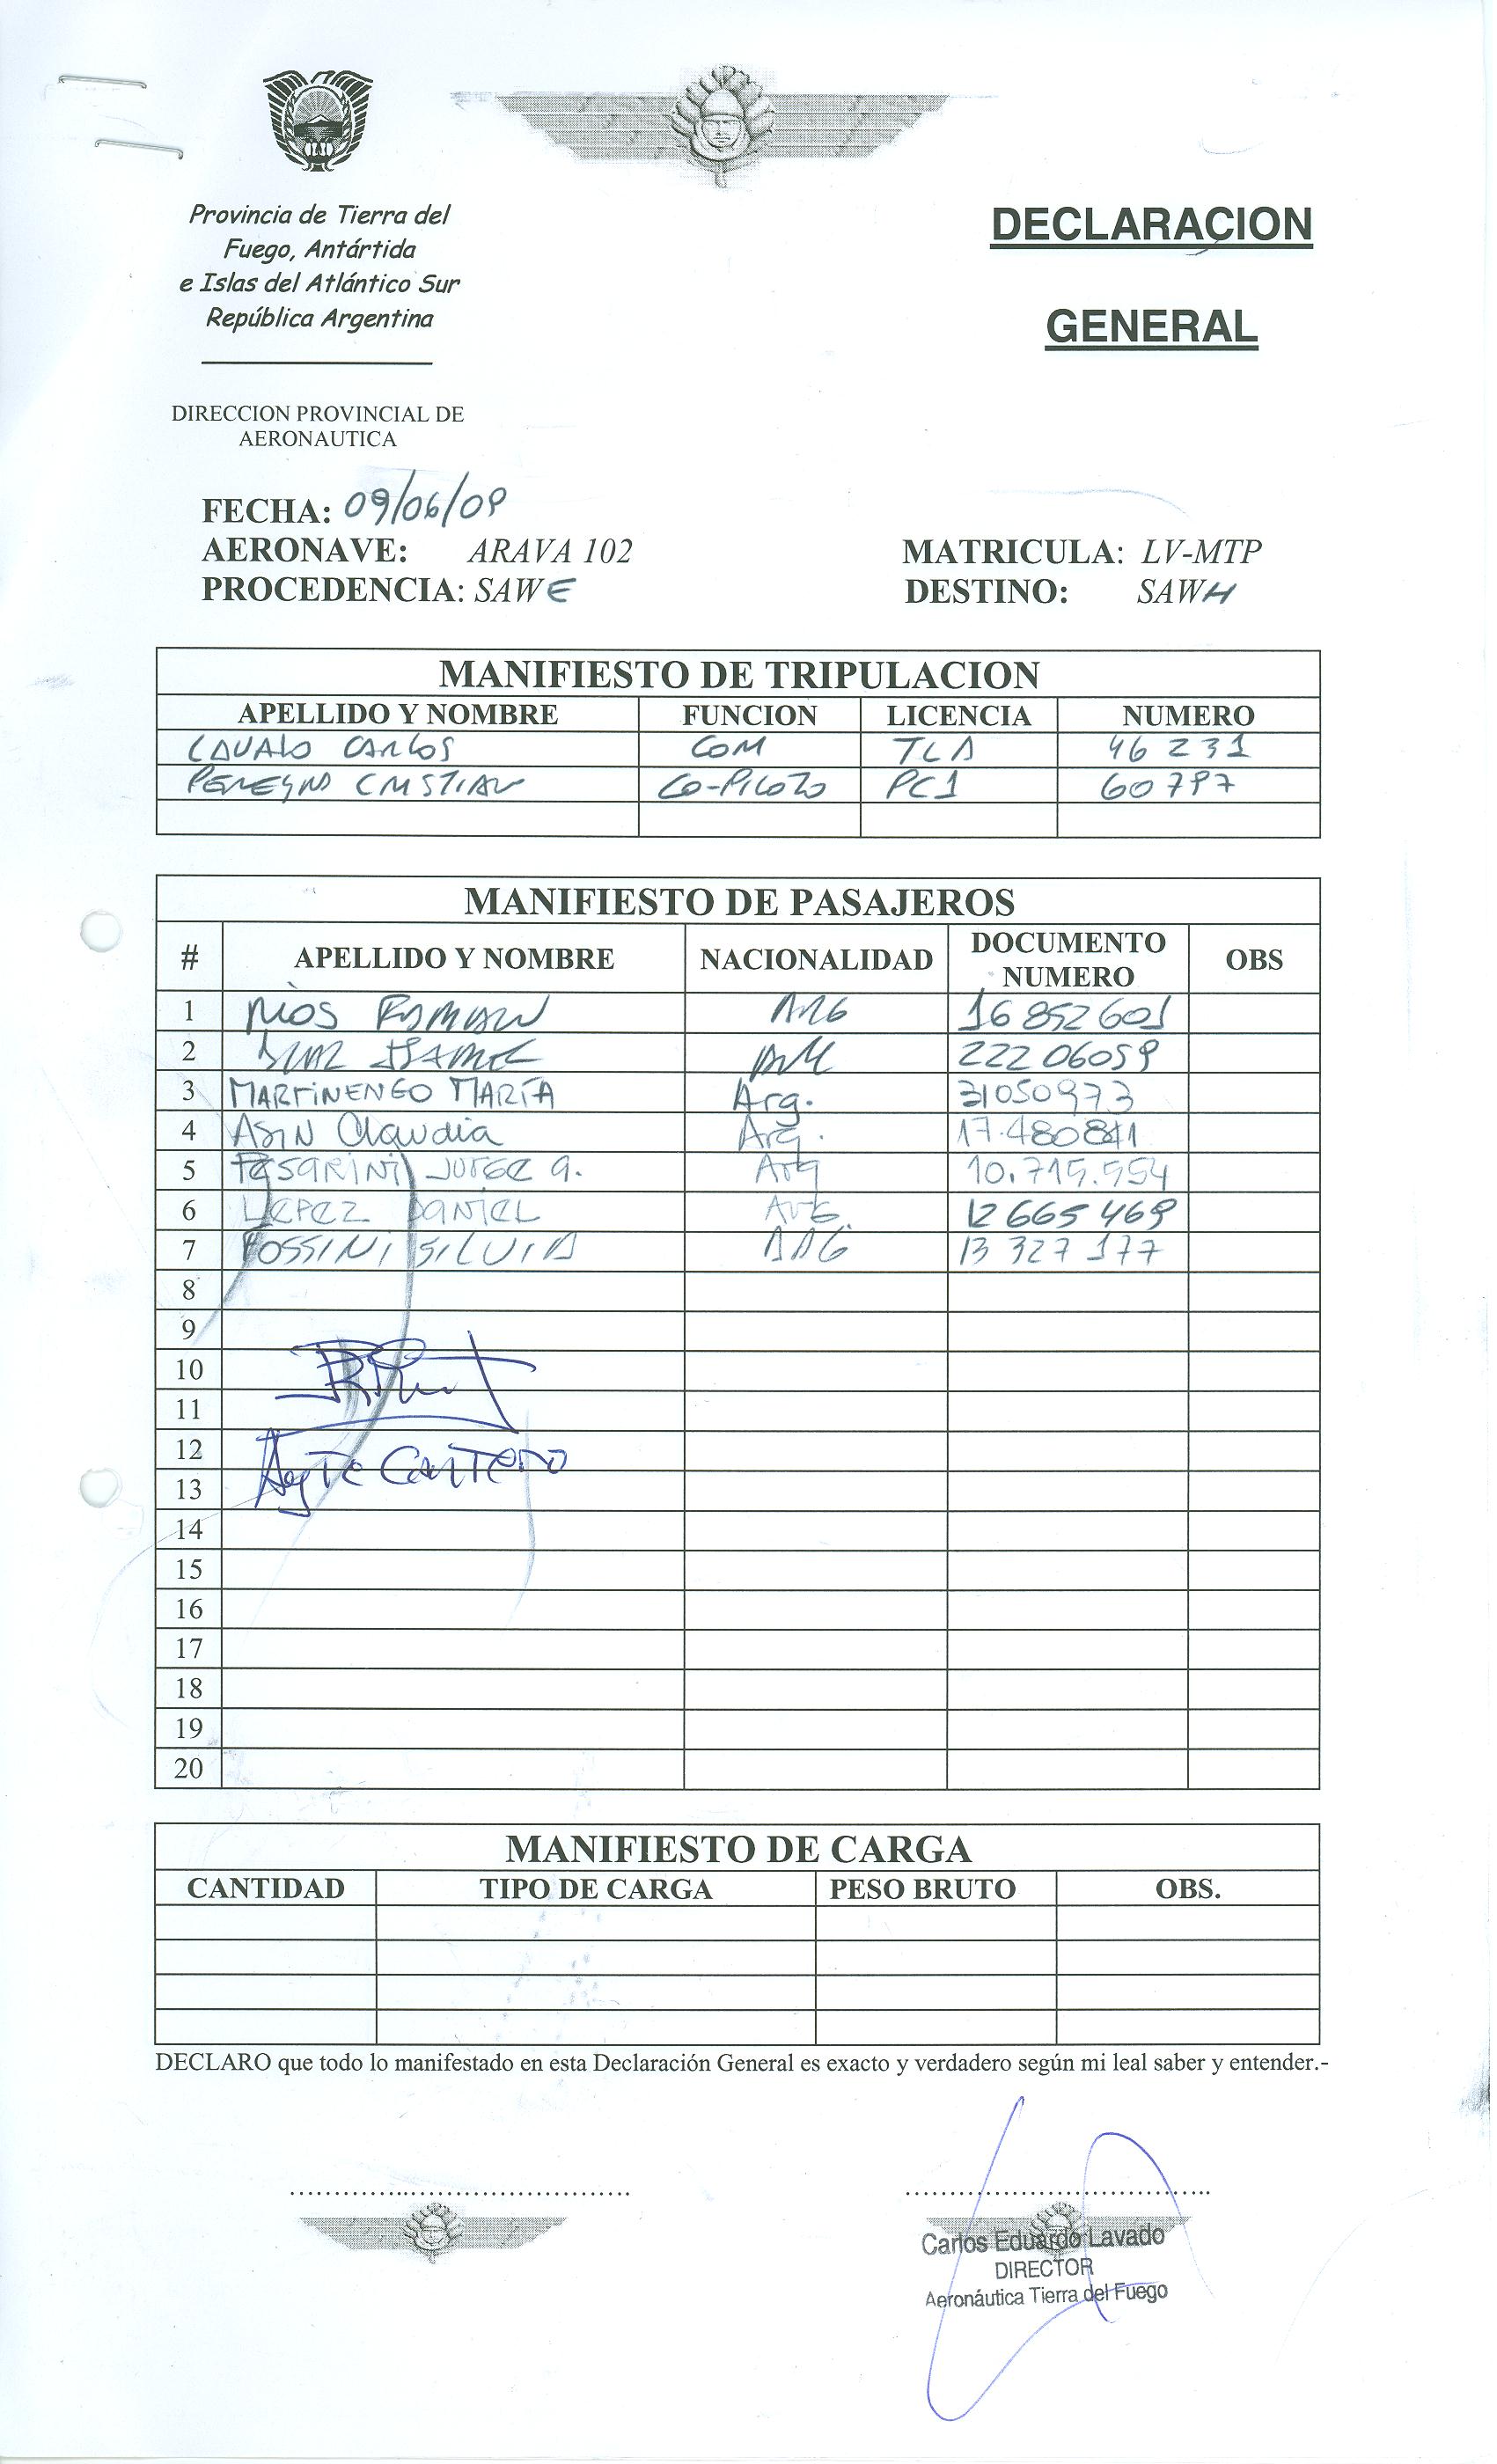 Provincia de Tierra del
Fuego, Antártida
e Islas del Atlántico Sur
República Argentina
DECLARACION
GENERAL
DIRECCION PROVINCIAL DE
AERONAUTICA
FECHA: 09/06/09
AERONAVE: ARAVA 102 MATRICULA: LV-MTP
PROCEDENCIA: SAWE DESTINO: SAWH
MANIFIESTO DE TRIPULACION
APELLIDO Y NOMBRE FUNCION LICENCIA NUMERO
CARLOS COM TLA 46 231
CO-PILOTO PC1 60797
MANIFIESTO DE PASAJEROS
# APELLIDO Y NOMBRE NACIONALIDAD DOCUMENTO NUMERO OBS
1 RIOS ARG 16 852 601
2 222 06059
3 MARTINENGO MARÍA Arg. 31050973
4 ASIN Claudia Arg. 17.480841
5 JORGE Arg 10.715.554
6 LEPEZ DANIEL ARG. 12 665 469
7 ROSSINI SILVIA ARG 13 327 177
8
9
10
11
12 Agte CANTERO
13
14
15
16
17
18
19
20
MANIFIESTO DE CARGA
CANTIDAD TIPO DE CARGA PESO BRUTO OBS.
DECLARO que todo lo manifestado en esta Declaración General es exacto y verdadero según mi leal saber y entender.-
Carlos Eduardo Lavado
DIRECTOR
Aeronáutica Tierra del Fuego